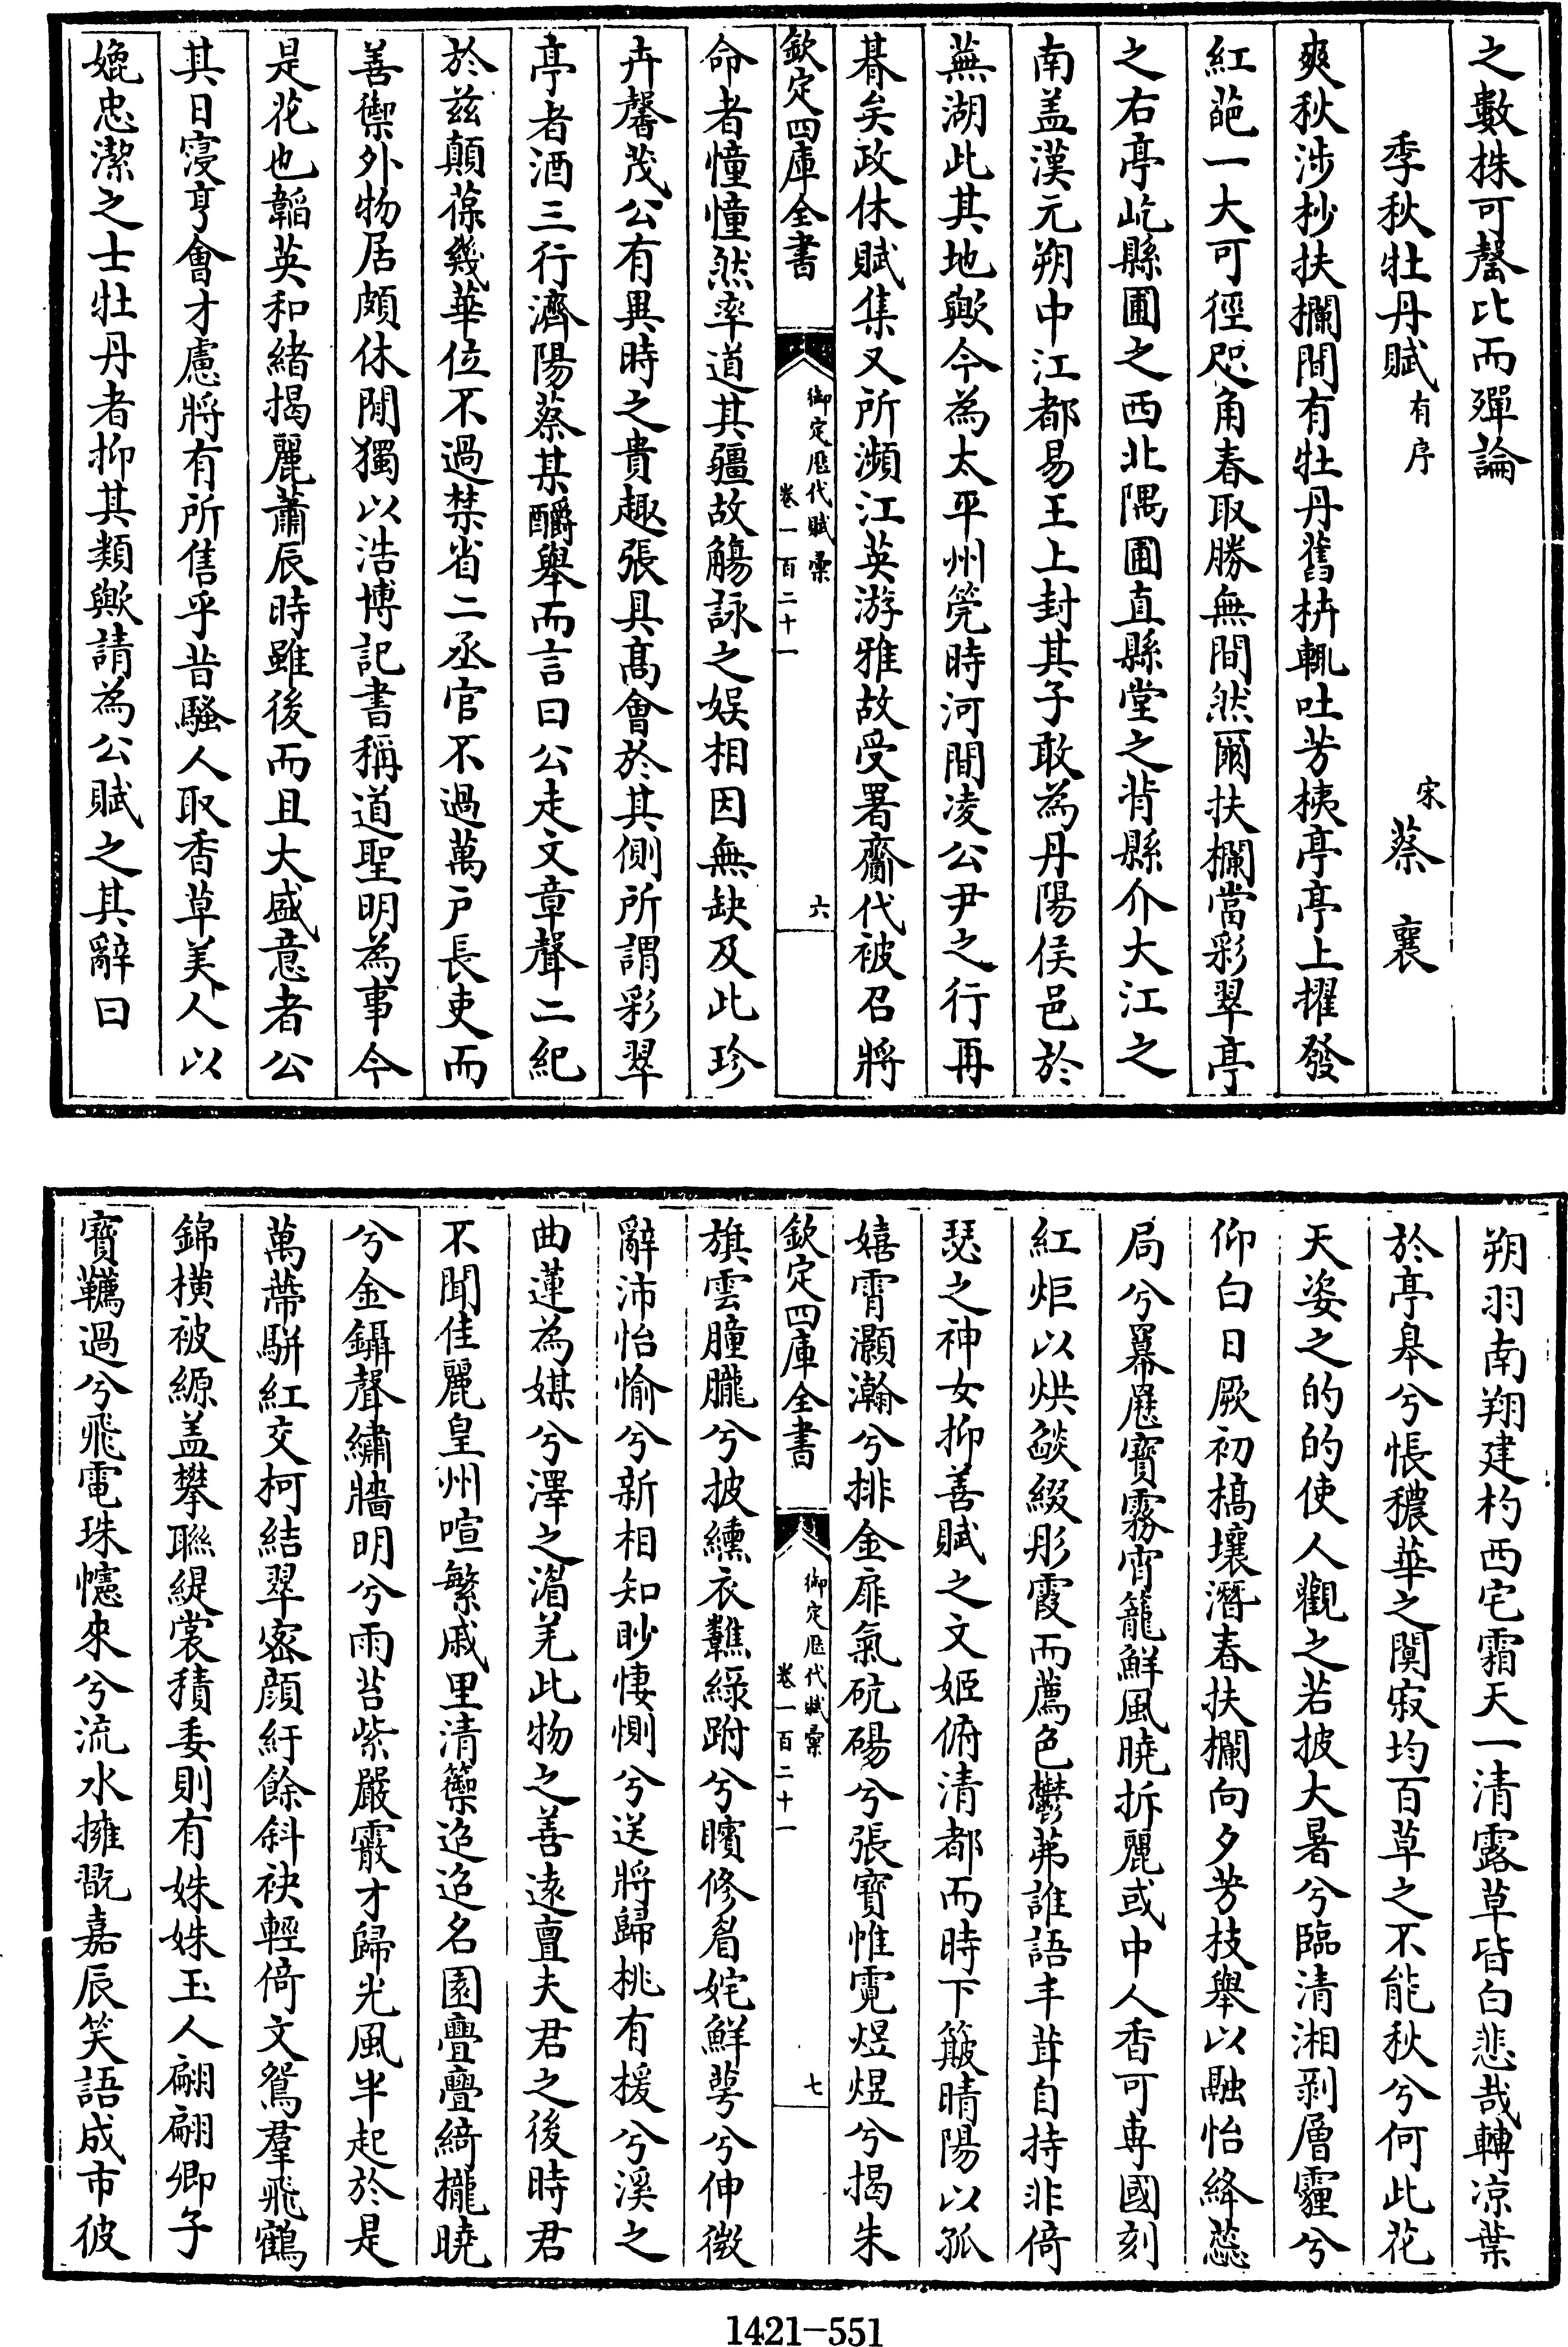 之數株可罄比而殫論
季秋牡丹賦有序　宋蔡襄
爽秋涉杪扶欄間有牡丹舊枿輒吐芳桋亭亭上擢發
紅葩一大可徑咫角春取勝無間然爾扶欄當彩翠亭
之右亭屹縣圃之西北隅圃直縣堂之背縣介大江之
南盖漢元朔中江都易王上封其子敢為丹陽侯邑於
蕪湖此其地歟今為太平州筦時河間凌公尹之行再
朞矣政休賦集又所瀕江英游雅故受署齋代被召將
欽定四庫全書
御定歷代賦彚
卷一百二十一
六
命者憧憧然率道其疆故觴詠之娱相因無缺及此珍
卉馨茂公有異時之貴趣張具髙會於其側所謂彩翠
亭者酒三行濟陽蔡某釂舉而言曰公走文章聲二紀
於兹顛葆幾華位不過禁省二丞官不過萬户長吏而
善禦外物居頗休閒獨以浩博記書稱道聖明為事今
是花也韜英和緒揭麗蕭辰時雖後而且大盛意者公
其日寖亨會才慮將有所售乎昔騷人取香草美人以
媲忠潔之士牡丹者抑其類歟請為公賦之其辭曰
朔羽南翔建杓西宅霜天一清露草皆白悲哉轉凉葉
於亭皋兮悵穠華之闃寂均百草之不能秋兮何此花
天姿之的的使人觀之若披大暑兮臨清湘剥層霾兮
仰白日厥初槁壤潛春扶欄向夕芳枝舉以融怡絳蕊
局兮羃歷寶霧宵籠鮮風曉拆麗或中人香可專國刻
紅炬以烘燄綴彤霞而薦色鬱茀誰語丰茸自持非倚
瑟之神女抑善賦之文姬俯清都而時下簸晴陽以孤
嬉霄灝瀚兮排金扉氣砊碭兮張寶帷霓煜煜兮揭朱
欽定四庫全書
御定歷代賦彚
卷一百二十一
七
旗雲朣朧兮披纁衣蘸綠跗兮矉修眉姹鮮萼兮伸微
辭沛怡愉兮新相知眇悽惻兮送將歸桃有援兮溪之
曲蓮為媒兮澤之湄羌此物之善遠亶夫君之後時君
不聞佳麗皇州喧繁戚里清籞迢迢名園疊疊綺櫳曉
兮金鑷聲繡牆明兮雨苔紫嚴霰才歸光風半起於是
萬蔕駢紅交柯結翠密顔紆餘斜袂輕倚文鴛羣飛鶴
錦横被縓盖攀聯緹裳積委則有姝姝玉人翩翩卿子
寶韉過兮飛電珠幰來兮流水擁翫嘉辰笑語成市彼
1421-551